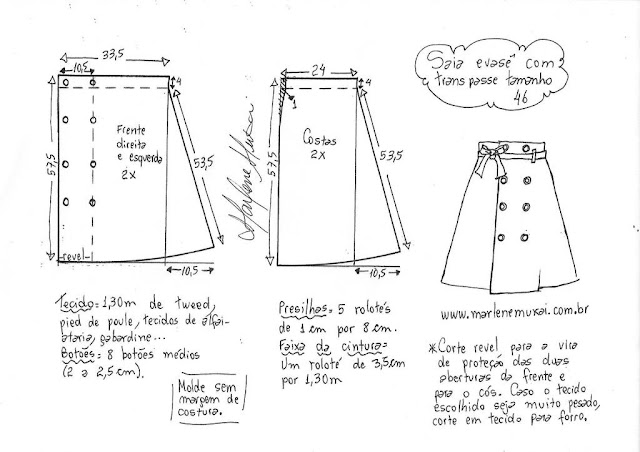 33,5
10,5
4
57,5
Frente
direita
e esquerda
2x
53,5
revel
10,5
Marlene Mukai
24
4
1
57,5
Costas
2x
53,5
10,5
Saia evasê com
transpasse tamanho
46
www.marlenemukai.com.br
Tecido = 1,30m de tweed,
pied de poule, tecidos de alfai-
ataria, gabardine...
Botões = 8 botões médios
(2 a 2,5cm).
Molde sem
margem de
costura.
Presilhas = 5 rolotés
de 1cm por 8cm.
Faixa da cintura =
Um roloté de 3,5cm
por 1,30m
*Corte revel para a vira
de proteção das duas
aberturas da frente e
para o cós. Caso o tecido
escolhido seja muito pesado,
corte em tecido para forro.